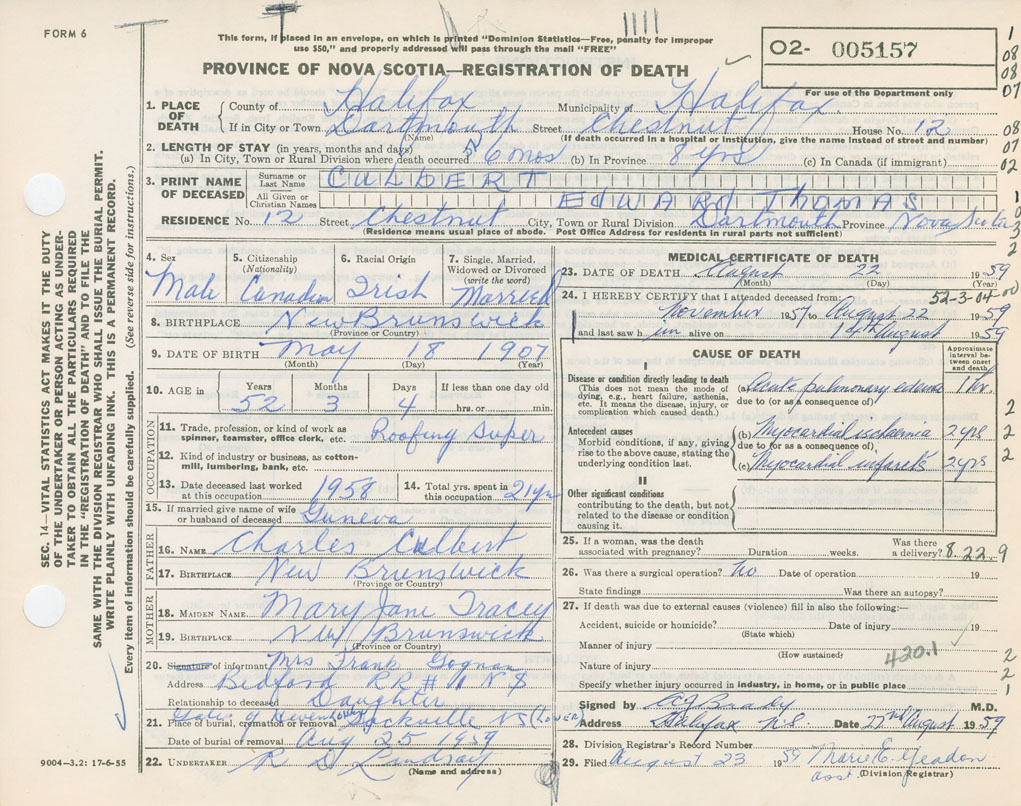 FORM 6
This form, if placed in an envelope, on which is printed "Dominion Statistics—Free, penalty for improper
use $50," and properly addressed will pass through the mail "FREE"
O2- 005157
For use of the Department only
PROVINCE OF NOVA SCOTIA—REGISTRATION OF DEATH
1. PLACE OF DEATH
County of Halifax Municipality of Halifax
If in City or Town Dartmouth Street Chestnut House No. 12
(Name) (If death occurred in a hospital or institution, give the name instead of street and number)
2. LENGTH OF STAY (in years, months and days)
(a) In City, Town or Rural Division where death occurred 6 mos (b) In Province 8 yrs (c) In Canada (if immigrant)
3. PRINT NAME OF DECEASED
Surname or Last Name CULBERT
All Given or Christian Names EDWARD THOMAS
RESIDENCE No. 12 Street Chestnut City, Town or Rural Division Dartmouth Province Nova Scotia
(Residence means usual place of abode. Post Office Address for residents in rural parts not sufficient)
1
08
08
07
08
07
02
1
2
SEC. 14—VITAL STATISTICS ACT MAKES IT THE DUTY
OF THE UNDERTAKER OR PERSON ACTING AS UNDER-
TAKER TO OBTAIN ALL THE PARTICULARS REQUIRED
IN THE "REGISTRATION OF DEATH" AND TO FILE THE
SAME WITH THE DIVISION REGISTRAR WHO SHALL ISSUE THE BURIAL PERMIT.
WRITE PLAINLY WITH UNFADING INK. THIS IS A PERMANENT RECORD.
Every item of information should be carefully supplied. (See reverse side for instructions.)
4. Sex
Male
5. Citizenship
(Nationality)
Canadian
6. Racial Origin
Irish
7. Single, Married,
Widowed or Divorced
(write the word)
Married
8. BIRTHPLACE New Brunswick
(Province or Country)
9. DATE OF BIRTH May 18 1907
(Month) (Day) (Year)
10. AGE in Years Months Days If less than one day old
52 3 4 hrs. or min.
OCCUPATION
11. Trade, profession, or kind of work as
spinner, teamster, office clerk, etc. Roofing Super
12. Kind of industry or business, as cotton-
mill, lumbering, bank, etc.
13. Date deceased last worked
at this occupation 1958
14. Total yrs. spent in
this occupation 21 yrs
15. If married give name of wife
or husband of deceased Guneva
FATHER
16. NAME Charles Culbert
17. BIRTHPLACE New Brunswick
(Province or Country)
MOTHER
18. MAIDEN NAME Mary Jane Tracey
19. BIRTHPLACE New Brunswick
(Province or Country)
20. Signature of informant Mrs Frank Gognan
Address Bedford RR # 1 N S
Relationship to deceased Daughter
21. Place of burial, cremation or removal Gate of Heaven Sackville NS (Lower)
Date of burial or removal Aug 25 1959
22. UNDERTAKER R D Lindsay
(Name and address)
9004—3.2: 17-6-55
MEDICAL CERTIFICATE OF DEATH
23. DATE OF DEATH August 22 1959
(Month) (Day) (Year)
24. I HEREBY CERTIFY that I attended deceased from: 52-3-04-00
November 1957 to August 22 1959
and last saw him alive on August 1959
CAUSE OF DEATH
Approximate
interval be-
tween onset
and death
I
Disease or condition directly leading to death
(This does not mean the mode of
dying, e.g., heart failure, asthenia,
etc. It means the disease, injury, or
complication which caused death.)
(a) Acute pulmonary edema 1 hr.
due to (or as a consequence of)
Antecedent causes
Morbid conditions, if any, giving
rise to the above cause, stating the
underlying condition last.
(b) Myocardial ischaemia 2 yrs
due to (or as a consequence of),
(c) Myocardial infarcts 2 yrs
2
2
2
II
Other significant conditions
contributing to the death, but not
related to the disease or condition
causing it.
25. If a woman, was the death
associated with pregnancy? Duration weeks. Was there
a delivery? 8.22.9
26. Was there a surgical operation? no Date of operation 19
State findings Was there an autopsy?
27. If death was due to external causes (violence) fill in also the following:—
Accident, suicide or homicide? Date of injury 19
(State which)
Manner of injury
(How sustained)
420.1
Nature of injury
Specify whether injury occurred in industry, in home, or in public place
2
2
1
Signed by Brady M.D.
Address Halifax N.S. Date 22nd August 1959
28. Division Registrar's Record Number
29. Filed August 23 1959 Marie E. Yeadon
asst (Division Registrar)